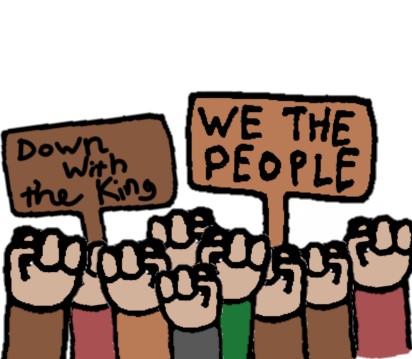 Down
with
the King
WE THE
PEOPLE